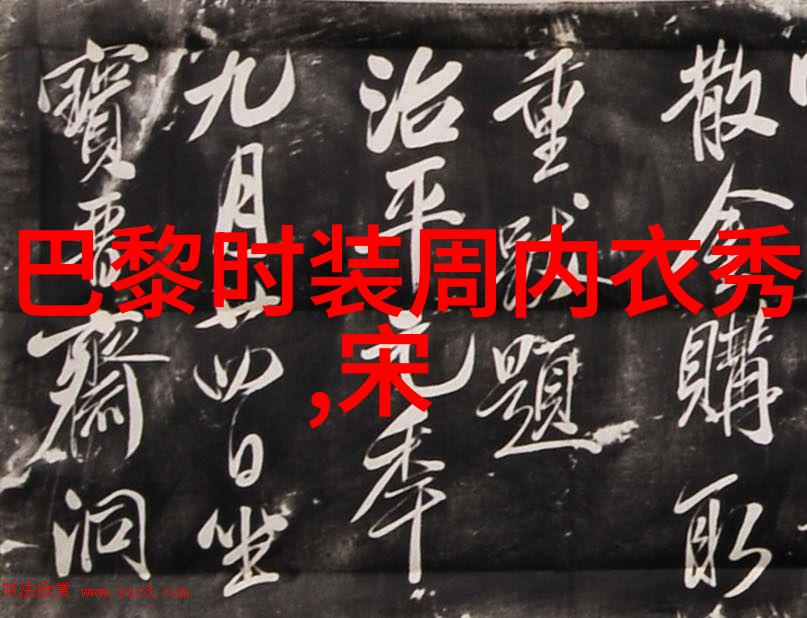 巴黎时装周内衣秀
,宋
散金購取
重跋題
治平元年
九月廿四日坐
寶晉齋洞
书法欣赏 www.yac8.com